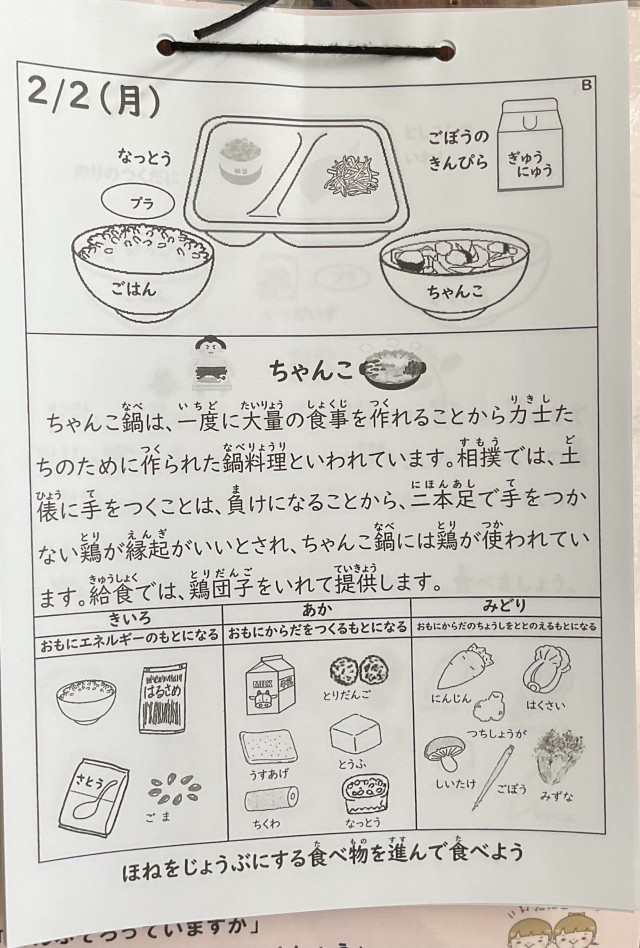 2/2(月)
B
なっとう
プラ
ごぼうの
きんぴら
ぎゅう
にゅう
ごはん
ちゃんこ
ちゃんこ
ちゃんこ鍋は、一度に大量の食事を作れることから力士た
ちのために作られた鍋料理といわれています。相撲では、土
俵に手をつくことは、負けになることから、二本足で手をつか
ない鶏が縁起がいいとされ、ちゃんこ鍋には鶏が使われてい
ます。給食では、鶏団子をいれて提供します。
きいろ
おもにエネルギーのもとになる
はるさめ
さとう
ごま
あか
おもにからだをつくるもとになる
MILK
とりだんご
うすあげ
とうふ
ちくわ
なっとう
みどり
おもにからだのちょうしをととのえるもとになる
にんじん
はくさい
つちしょうが
しいたけ
ごぼう
みずな
ほねをじょうぶにする食べ物を進んで食べよう
ていますか」